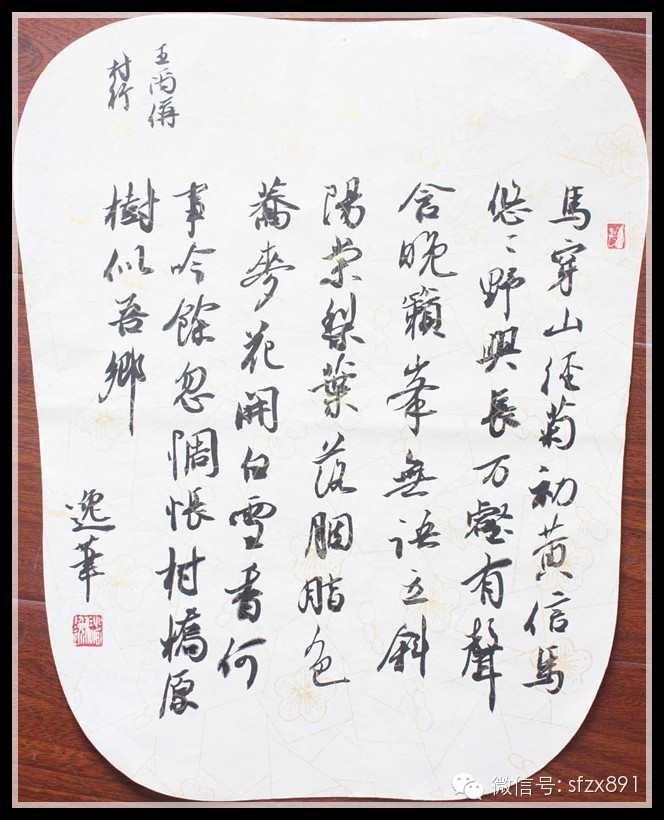 馬穿山徑菊初黃信馬
悠〻野興長万壑有聲
含晚籟峯無語立斜
陽棠梨葉落胭脂色
蕎麥花開白雪香何
事吟餘忽惆悵村橋原
樹似吾鄉
王禹偁
村行
逸華
微信号: sfzx891